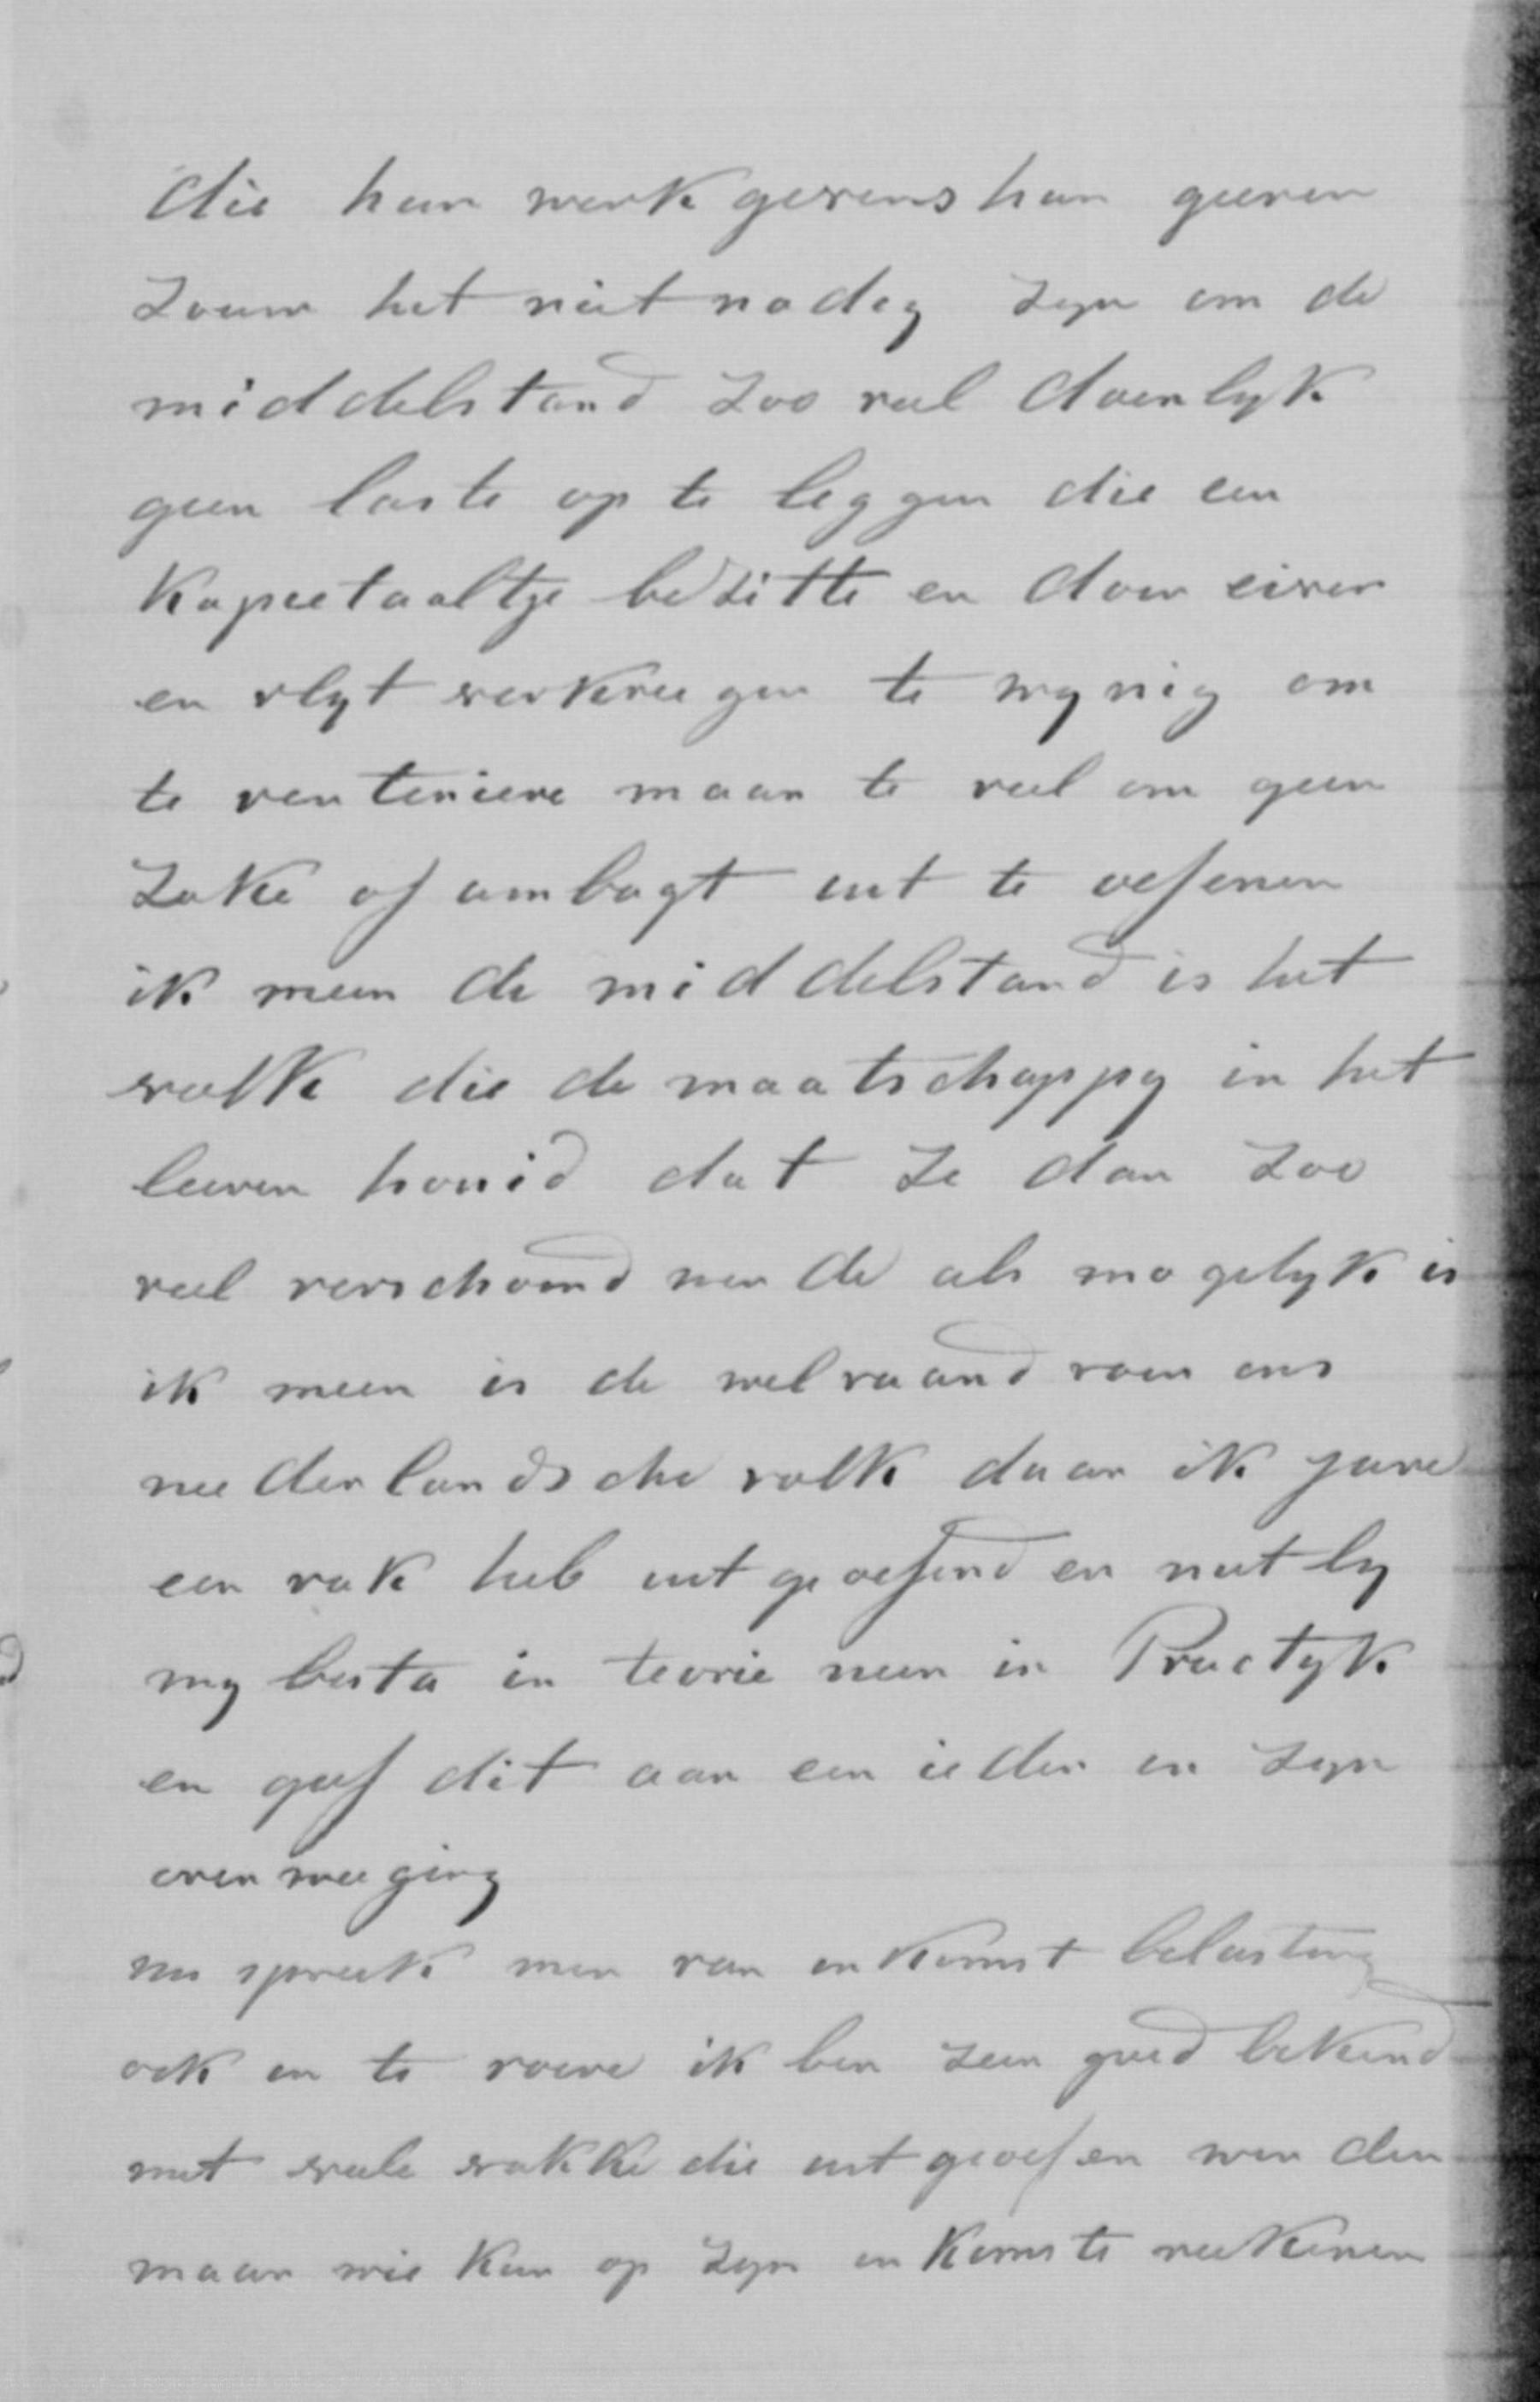 die hun werkgevers hun geeven
zouw het niet nodig zyn om de
middelstand zoo veel doenlyk
geen laste op te leggen die een
Kapietaaltje bezitte en door eiver
en vlyt verkreegen te wynig om
te renteniere maar te veel om geen
zake of ambagt uit te oefenen
ik meen de middelstand is het
volk die de maatschappy in het
leeven houid dat ze dan zoo
veel verschoond werde als mogelyk is
ik meen is de welvaand voor ons
neederlandsche volk daar ik jare
een vak heb uit geoefend en niet by
my besta in teorie neen in Practyk
en geef dit aan een ieder in zyn
overweeging
nu spreek men van inkomst belasting
ook in te voere ik ben zeer goed bekend
met veele vakke die uit geoefen werden
maar wie kan op zyn inkomste reekenen